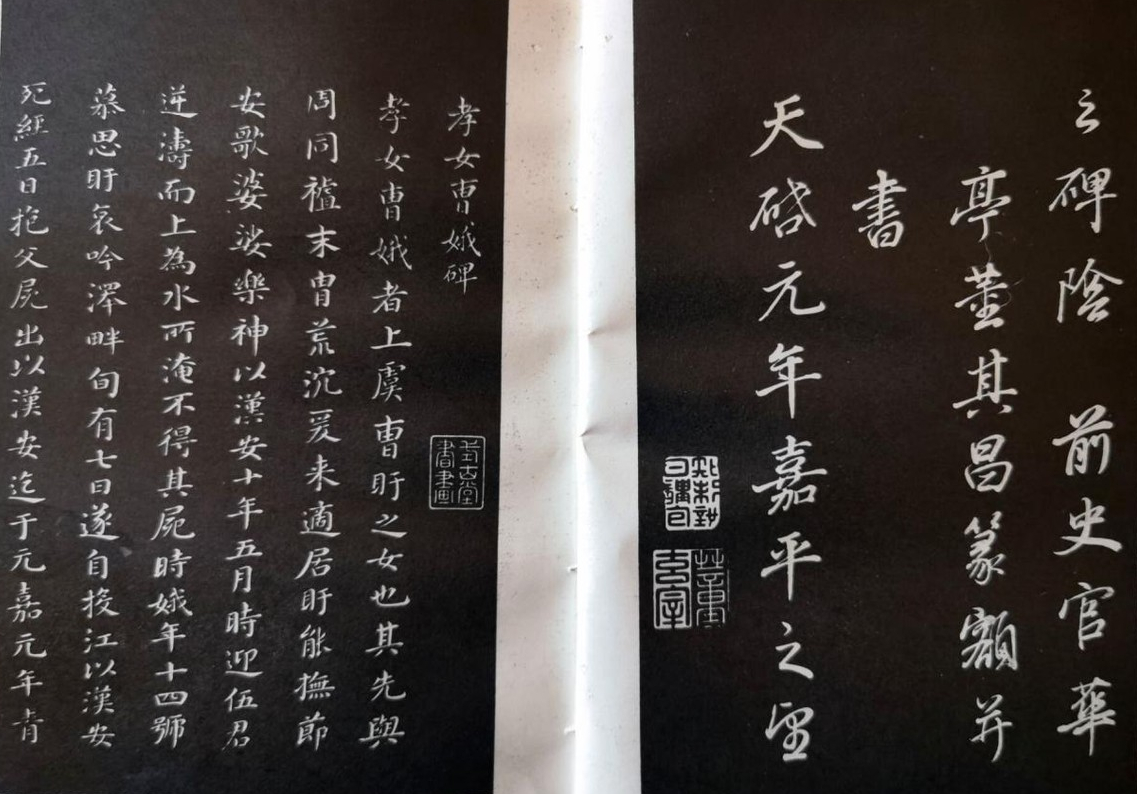 之碑陰 前史官華
亭董其昌篆額并
書
天啓元年嘉平之望
知制誥日講官
董玄宰
孝女曹娥碑
孝女曹娥者上虞曹盱之女也其先與
周同禠末胄荒沉爰来適居盱能撫節
安歌婆娑樂神以漢安十年五月時迎伍君
逆濤而上為水所淹不得其屍時娥年十四號
慕思盱哀吟澤畔旬有七日遂自投江以漢安
死經五日抱父屍出以漢安迄于元嘉元年青